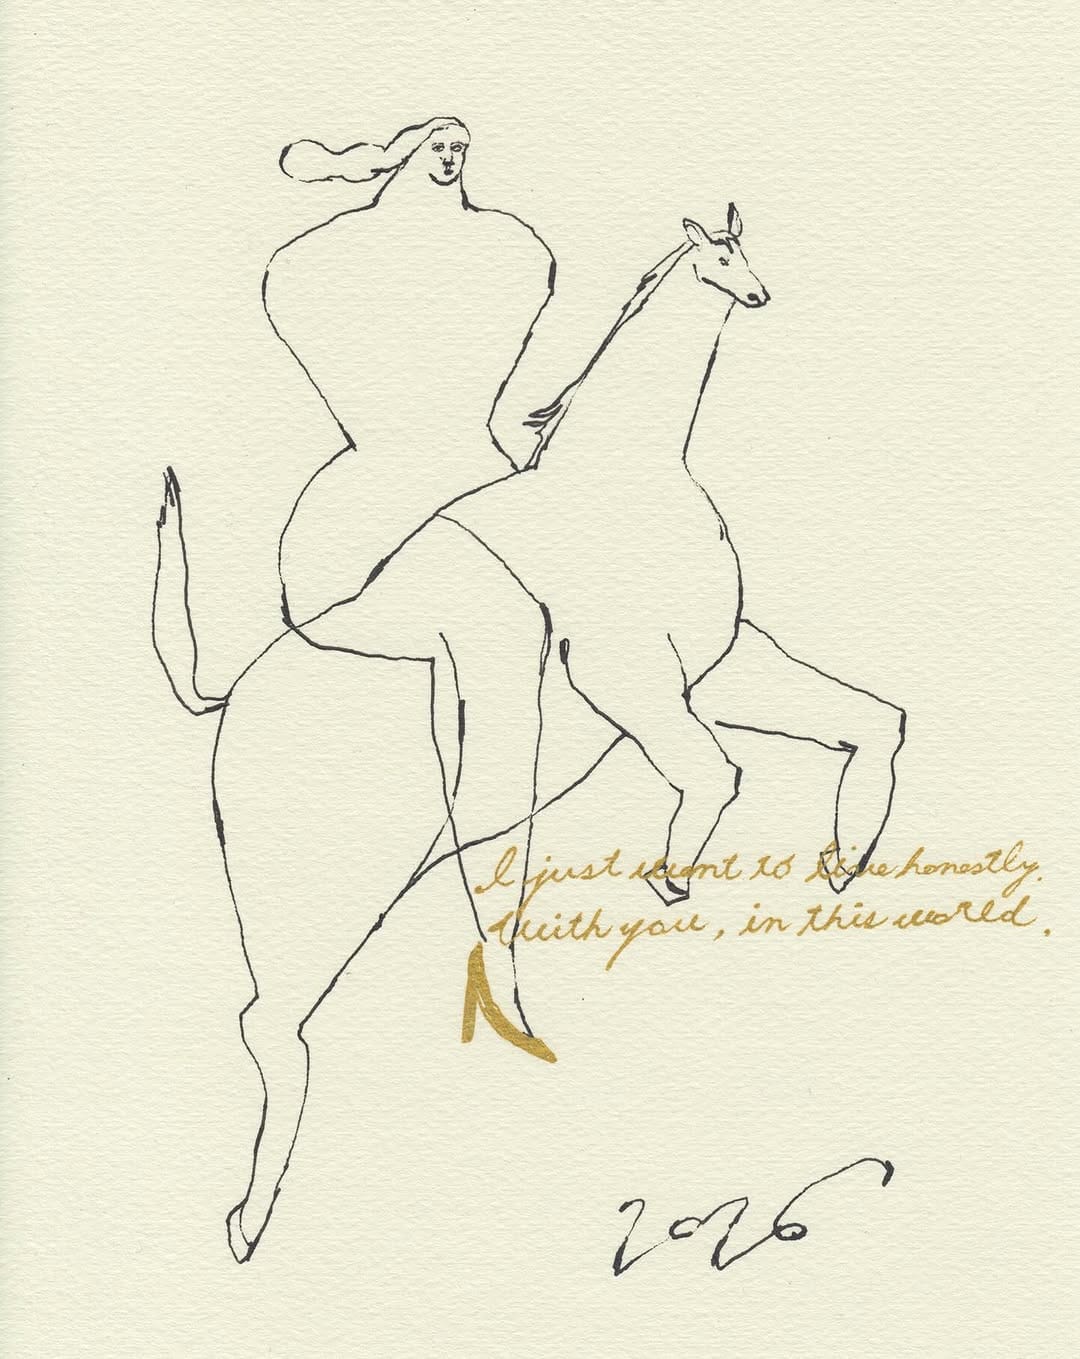 I just want to live honestly.
With you, in this world.
2026